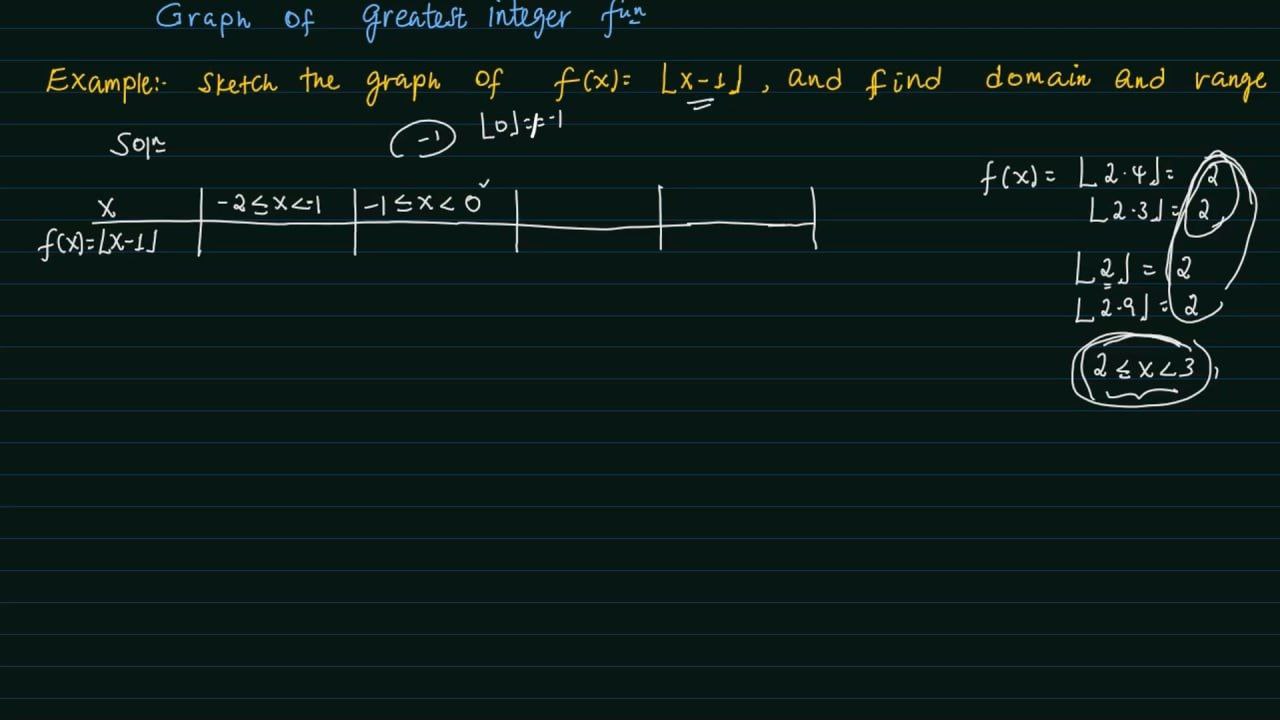 Graph of greatest integer fun
Example:- sketch the graph of f(x)= ⌊x-1⌋, and find domain and range
Soln
-1 ⌊0⌋=≠-1
x -2≤x<-1 -1≤x<0
f(x)=⌊x-1⌋
f(x)= ⌊2.4⌋= 2
⌊2.3⌋= 2
⌊2⌋ = 2
⌊2.9⌋ = 2
2≤x<3,